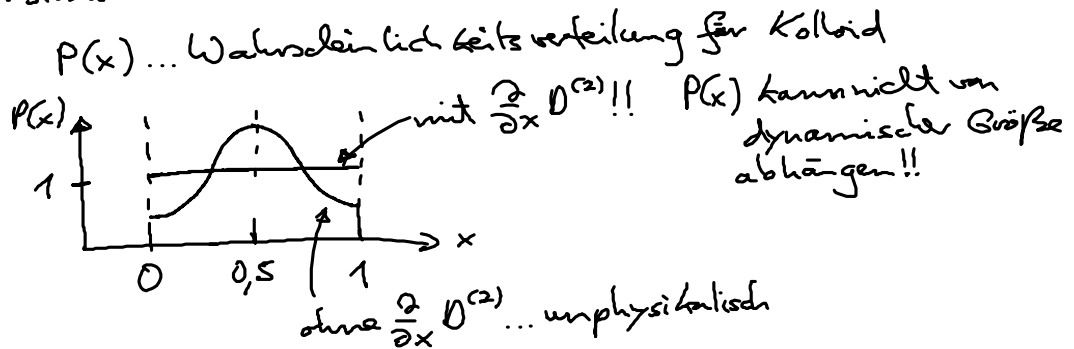 P(x) ... Wahrscheinlichkeitsverteilung für Kolloid
P(x)
mit ∂/∂x D⁽²⁾!!
P(x) kann nicht von
dynamischer Größe
abhängen!!
1
x
0 0,5 1
ohne ∂/∂x D⁽²⁾ ... unphysikalisch